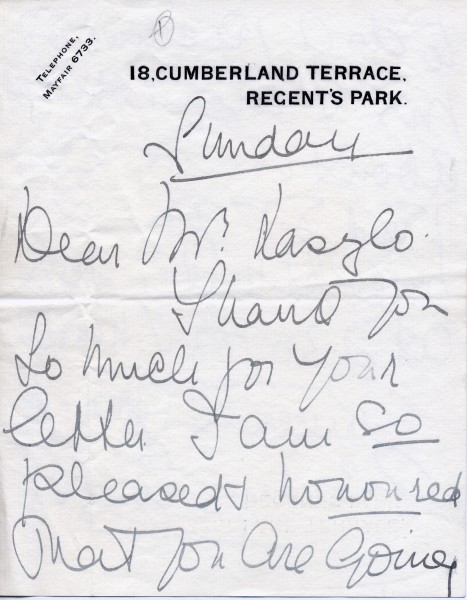 TELEPHONE,
MAYFAIR 6733.
18, CUMBERLAND TERRACE,
REGENT'S PARK.
Sunday
Dear Mr. Laszlo.
Thank you
so much for your
letter. I am so
pleased & honoured
that you are going